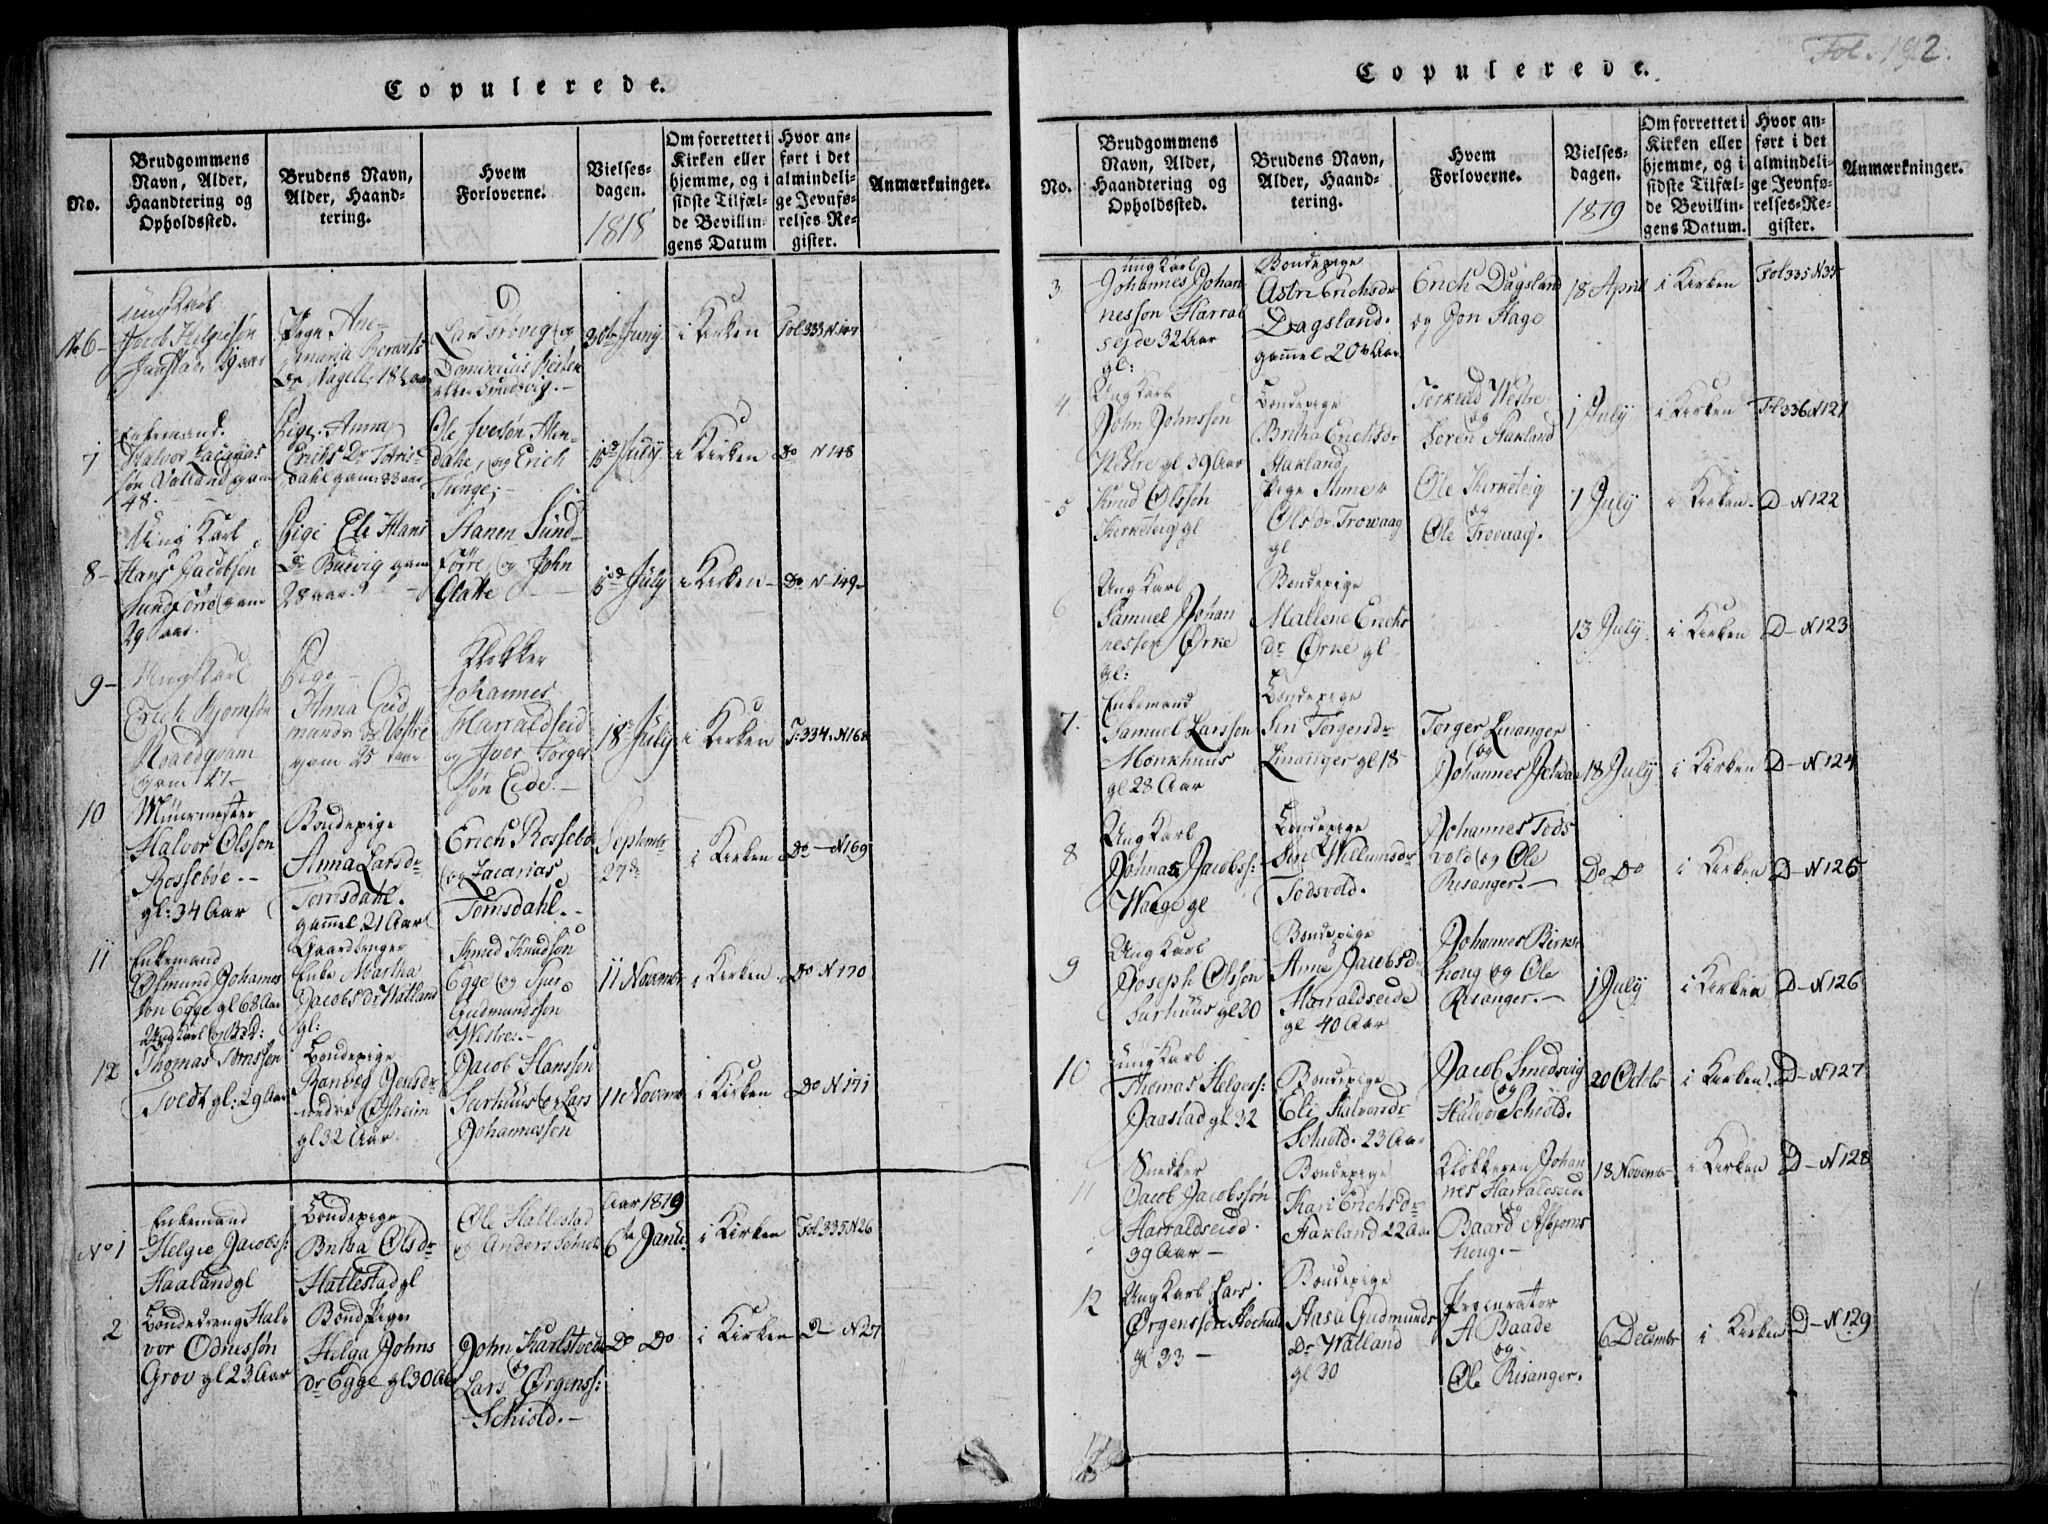 Copulerede.
No.
Brudgommens
Navn, Alder,
Haandtering og
Opholdssted.
Brudens Navn,
Alder, Haand-
tering.
Hvem
Forloverne.
Vielses-
dagen.
1818
Om forrettet i
Kirken eller
hjemme, og i
sidste Tilfæl-
de Bevillin-
gens Datum
Hvor an-
ført i det
almindeli-
ge Jevnfø-
relses-Re-
gister.
Anmærkninger.
No 6
Ungkarl
Jacob Helgesøn
Jaastad, 29 aar
Pige Ane
maria Berents
Dr Nagell, 18½ aar
Lars Trøvig og
Dominicus
Smedsvig.
30te Juny
i Kirken
Fol 333 N 147
7
Enkemand.
Halvor Zacarias
søn Valland gam
48.
Pige. Anna
Erichs Dr
dahl gam: 33 aar
Ole Iversøn
dahl, og Erich
Tunge;
15de July
i Kirken
Do N 148
8
Ung Karl
Hans Jacobsen
Sundførre gam
29 aar.
Pige Eli Hans
Dr gam
28 aar
Hanen Sund-
førre, og John
Glatte
15de July
i Kirken
Do N 149
9
Ungkarl
Erich Bjørnsøn
gam 47
Pige
Anna Gud
mands Dr Vestre
gam 25 aar
Klokker
Johannes
Harraldseid
og Iver Torger
søn Eide.
18de July
i Kirken
F 334. N 168
10
Muurmester
Halvor Olsson
Rossebøe.
gl: 34 Aar
Bondepige
Anna Larsdr
Tomsdahl.
gammel 21 Aar
Erich Rossebø
og Zacarias
Tomsdahl.
September
27de
i Kirken
Do N 169
11
Enkemand
Osmund Johannes
søn Egge gl 68 Aar
Gaardbruger
Enke Martha
Jacobs dr Watland
gl:
Knud Knudsøn
Egge og
Gudmundsson
Westre.
11 November
i Kirken
Do N 170
12
Ungkarl og
Thomas
Tvedt gl: 29 Aar
Bondepige
Ranveg Jensdr
nedre Østreim
gl 32 Aar.
Jacob Hansson
Sørhuus og Lars
Johannesson
11 November
i Kirken
Do N 171
Aar 1819
No 1
Enkemand
Helgie Jacobs:
Haaland gl
Bondepige
Britha Olsdr
Hallestad gl
Ole Hallestad
og Anders Schiold
6te Janu
i Kirken
Fol 335 N 26
2
Bondedreng Hal
vor Odnessøn
Grov gl 23 Aar
Bondepige
Helga Johns
dr Egge gl 30 Aar
John Karlstvedt
og
Lars Ørgenss:
Schiold.
Do Do
i Kirken
D N 27
Fol. 192.
Copulerede.
No.
Brudgommens
Navn, Alder,
Haandtering og
Opholdssted.
Brudens Navn,
Alder, Haand-
tering.
Hvem
Forloverne.
Vielses-
dagen.
1819
Om forrettet i
Kirken eller
hjemme, og i
sidste Tilfæl-
de Bevillin-
gens Datum.
Hvor an-
ført i det
almindeli-
ge Jevnfø-
relses-Re-
gister.
Anmærkninger.
3
Ungkarl
Johannes Johan
nesson Harral
sejde 32 Aar
gl:
Bondepige
Astri Erichsdr
Dagsland.
gammel 20 Aar
Erich Dagsland
og Jon Hage
18 April
i Kirken
Fol 335 N 35
4
Ungkarl
John Johnsson
Westre gl 39 Aar
Bondepige
Britha Erichsdr
Hakland
Torkuld Westre
og
Søren Hakland
1 July
i Kirken
Fl 336 N 121
5
Knud Olsson
Kirketeig gl
Pige Anne
Olsdr Trowaag
gl
Ole Kirketeig
og
Ole Trovaag.
1 July
i Kirken.
D N 122
6
Ungkarl
Samuel Johan
nesson Ørke
gl:
Bondepige
Mallene Erichs
dr Ørke gl
13 July.
i Kirken
D N 123
7
Enkemand
Samuel Larsson
Monkhuus
gl 28 Aar
Bondepige
Siri Torgersdr
Liwanger gl 18
Torger Liwanger
og
Johannes
18 July
i Kirken
D N 124
8
Ungkarl
Johnas Jacobss:
Waage gl
Bondepige
Siri Willumsdr
Todsvold.
Johannes Tods
vold og Ole
Risanger.
Do Do
i Kirken
D N 125
9
Ungkarl
Joseph Olsson
Sørhuus gl 30
Bondepige
Anne Jacobsdr
Harraldseide
gl 40 Aar
Johannes Birke
houg og Ole
Risanger.
1 July
i Kirken
D N 126
10
Ungkarl
Thomas Helgess:
Jaastad gl 32
Bondepige
Eli Halvorsdr
Schiold. 23 Aar
Jacob Smedsvig
og
Halvor Schiold.
20 Octbr
i Kirken
D N 127
11
Snedker
Jacob Jacobssøn
Harraldseide.
39 Aar
Bondepige
Kari Erichsdr
Hakland 22 Aar
Klokkeren Johan
nes Harraldseide
og
Baard Asbjorns
houg.
18 Novembr
i Kirken
D N 128
12
Ungkarl Lars
Ørgensson
gl 33
Bondepige
Aasa Gudmunds
Dr Watland
gl 30
Procurator
A Baade
og
Ole Risanger.
6 Decembr
i Kirken
D N 129